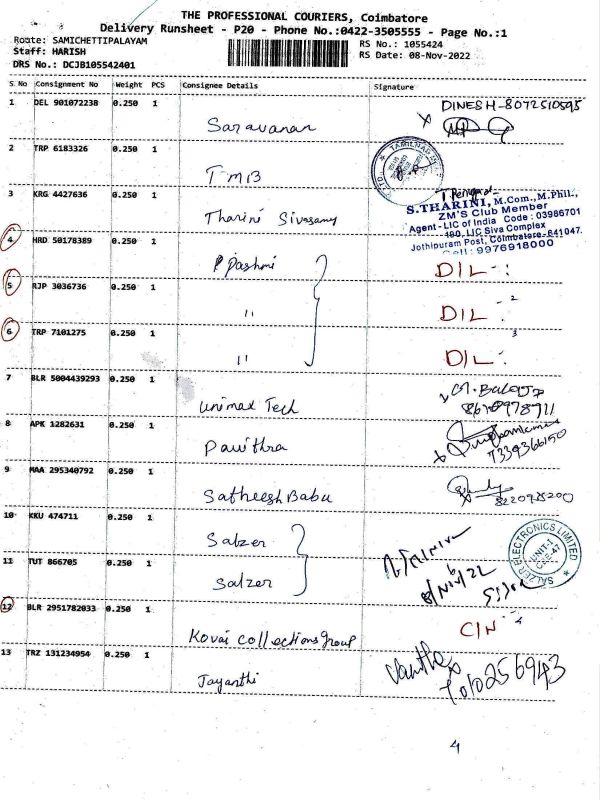 THE PROFESSIONAL COURIERS, Coimbatore
Delivery Runsheet - P20 - Phone No.:0422-3505555 - Page No.:1
Route: SAMICHETTIPALAYAM
Staff: HARISH
DRS No.: DCJB105542401
RS No.: 1055424
RS Date: 08-Nov-2022
S. No Consignment No Weight PCS Consignee Details Signature
1 DEL 901072238 0.250 1 Saravanan DINESH-8072510595
2 TRP 6183326 0.250 1 TMB
3 KRG 4427636 0.250 1 Tharini Sivasamy
S.THARINI, M.Com., M.Phil.,
ZM'S Club Member
Agent - LIC of India Code : 03986701
190, LIC Siva Complex
Jothipuram Post, Coimbatore-641047.
Cell : 9976918000
4 HRD 50178389 0.250 1 P Dashmi D/L
5 RJP 3036736 0.250 1 " D/L 2
6 TRP 7101275 0.250 1 " D/L 3
7 BLR 5004439293 0.250 1 Unimax Tech
8 APK 1282631 0.250 1 Pavithra
9 MAA 295340792 0.250 1 Satheesh Babu
10 KKU 474711 0.250 1 Salzer
11 TUT 866705 0.250 1 Salzer
SALZER ELECTRONICS LIMITED
UNIT-1
CBE-47
8/Nov/22
12 BLR 2951782033 0.250 1 Kovai Collections Group C/N 4
13 TRZ 131234954 0.250 1 Jayanthi
4